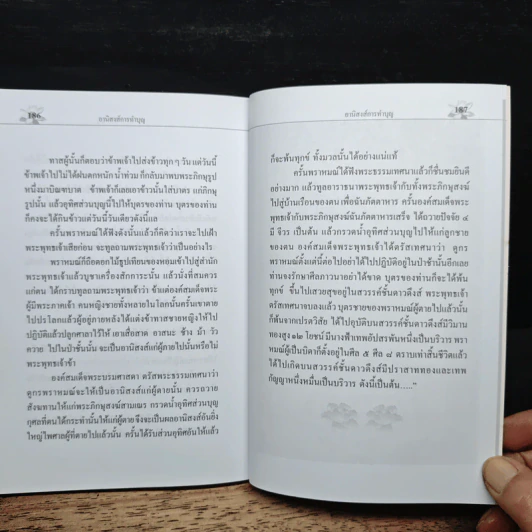 186
อานิสงส์การทำบุญ
ทาสผู้นั้นก็ตอบว่าข้าพเจ้าไปส่งข้าวทุกๆ วัน แต่วันนี้
ข้าพเจ้าไปไม่ได้ฝนตกหนัก น้ำท่วม ก็กลับมาพบพระภิกษุรูป
หนึ่งมาบิณฑบาต ข้าพเจ้าก็เลยเอาข้าวนั้นใส่บาตร แก่ภิกษุ
รูปนั้น แล้วอุทิศส่วนบุญนี้ไปให้บุตรของท่าน บุตรของท่าน
ก็คงจะได้กินข้าวแต่วันนี้วันเดียวดังนี้แล
ครั้นพราหมณ์ได้ฟังดังนั้นแล้วก็คิดว่าเราจะไปเฝ้า
พระพุทธเจ้าเสียก่อน จะทูลถามพระพุทธเจ้าว่าเป็นอย่างไร
พราหมณ์ก็ถือดอกไม้ธูปเทียนของหอมเข้าไปสู่สำนัก
พระพุทธเจ้าแล้วบูชาเครื่องสักการะนั้น แล้วนั่งที่สมควร
แก่ตน ได้กราบทูลถามพระพุทธเจ้าว่า ข้าแต่องค์สมเด็จพระ
ผู้มีพระภาคเจ้า คนหญิงชายทั้งหลายในโลกนั้นครั้นเขาตาย
ไปปรโลกแล้วผู้อยู่ภายหลังได้แต่งข้าทาสชายหญิงให้ไป
ปฏิบัติแล้วปลูกศาลาไว้ให้ เอาเสื่อสาด อาสนะ ช้าง ม้า วัว
ควาย ไปในป่าช้านั้น จะเป็นอานิสงส์แก่ผู้ตายไปนั้นหรือไม่
พระพุทธเจ้าข้า
องค์สมเด็จพระบรมศาสดา ตรัสพระธรรมเทศนาว่า
ดูกรพราหมณ์จะให้เป็นอานิสงส์แก่ผู้ตายนั้น ควรถวาย
สังฆทานให้แก่พระภิกษุสงฆ์สามเณร กรวดน้ำอุทิศส่วนบุญ
กุศลที่ตนได้กระทำนั้นให้แก่ผู้ตายจึงจะเป็นผลอานิสงส์อันยิ่ง
ใหญ่ไพศาลผู้ที่ตายไปแล้วนั้น ครั้นได้รับส่วนอุทิศอันให้แล้ว
อานิสงส์การทำบุญ
187
ก็จะพ้นทุกข์ ทั้งมวลนั้นได้อย่างแน่แท้
ครั้นพราหมณ์ได้ฟังพระธรรมเทศนาแล้วก็ชื่นชมยินดี
อย่างมาก แล้วทูลอาราธนาพระพุทธเจ้ากับทั้งพระภิกษุสงฆ์
ไปสู่บ้านเรือนของตน เพื่อฉันภัตตาหาร ครั้นองค์สมเด็จพระ
พุทธเจ้ากับพระภิกษุสงฆ์ฉันภัตตาหารเสร็จ ได้ถวายปัจจัย ๔
มี จีวร เป็นต้น แล้วกรวดน้ำอุทิศส่วนบุญไปให้แก่ลูกชาย
ของตน องค์สมเด็จพระพุทธเจ้าได้ตรัสเทศนาว่า ดูกร
พราหมณ์ตั้งแต่นี้ต่อไปอย่าได้ไปปฏิบัติอยู่ในป่าช้านั้นอีกเลย
ท่านจงรักษาศีลภาวนาอย่าได้ขาด บุตรของท่านก็จะได้พ้น
ทุกข์ ขึ้นไปเสวยสุขอยู่ในสวรรค์ชั้นดาวดึงส์ พระพุทธเจ้า
ตรัสเทศนาจบลงแล้ว บุตรชายของพราหมณ์ผู้ตายไปแล้วนั้น
ก็พ้นจากเปรตวิสัย ได้ไปอุบัติบนสวรรค์ชั้นดาวดึงส์มีวิมาน
ทองสูง ๑๒ โยชน์ มีนางฟ้าเทพอัปสรพันหนึ่งเป็นบริวาร พรา
หมณ์ผู้เป็นบิดาก็ตั้งอยู่ในศีล ๕ ศีล ๘ ตราบเท่าสิ้นชีวิตแล้ว
ได้ไปเกิดบนสวรรค์ชั้นดาวดึงส์มีปราสาททองและเทพ
กัญญาหนึ่งหมื่นเป็นบริวาร ดังนี้เป็นต้น....."